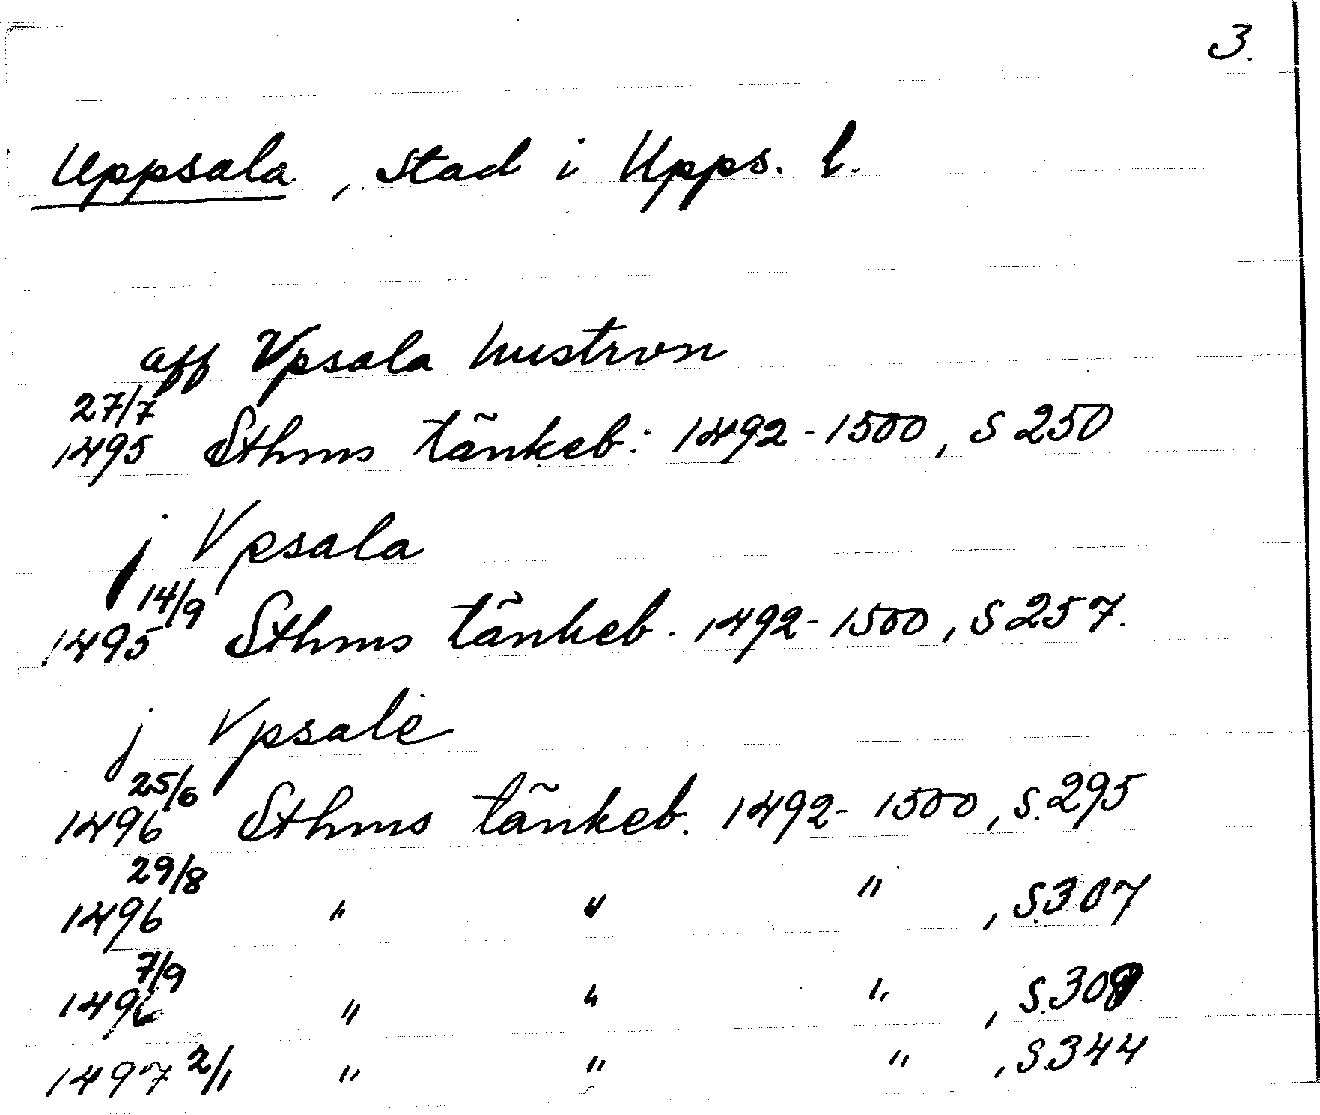 3.
Uppsala, stad i Upps. l.
aff Vpsala hustrvn
27/7
1495 Sthms tänkeb: 1492-1500, S 250
j Vpsala
14/9
1495 Sthms tänkeb. 1492-1500, S 257.
j Vpsale
25/6
1496 Sthms tänkeb. 1492-1500, S. 295
29/8
1496 " " " , S. 307
7/9
1496 " " " , S. 308
1497 2/1 " " " , S 344